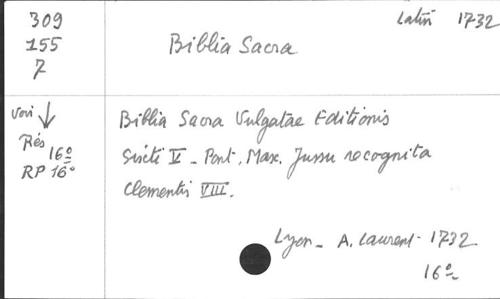 309
155
7
Biblia Sacra
Latin 1732
Voir ↓
Rés 16º
RP 16º
Biblia Sacra Vulgatae Editionis
Sixti V - Pont. Max. Jussu recognita
Clementis VIII.
Lyon - A. Laurent - 1732
16º